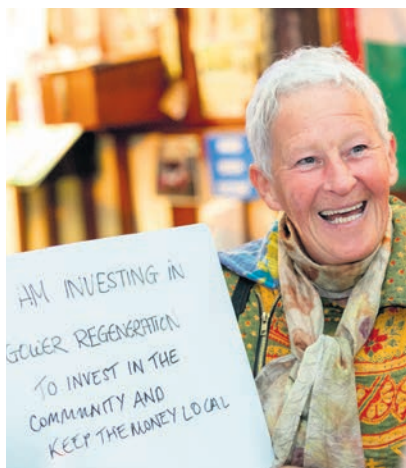 I'M INVESTING IN
GOWER REGENERATION
TO INVEST IN THE
COMMUNITY AND
KEEP THE MONEY LOCAL